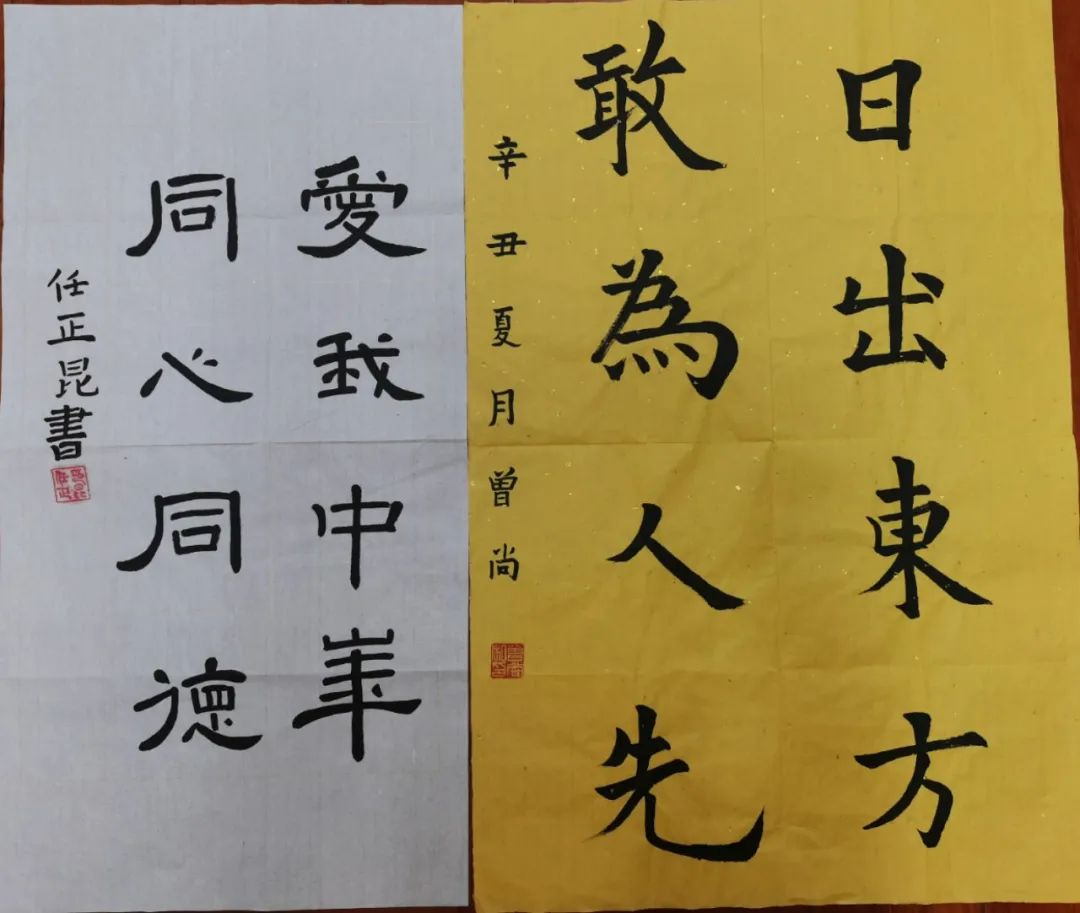 日出東方
敢為人先
辛丑夏月曾尚
愛我中華
同心同德
任正昆書